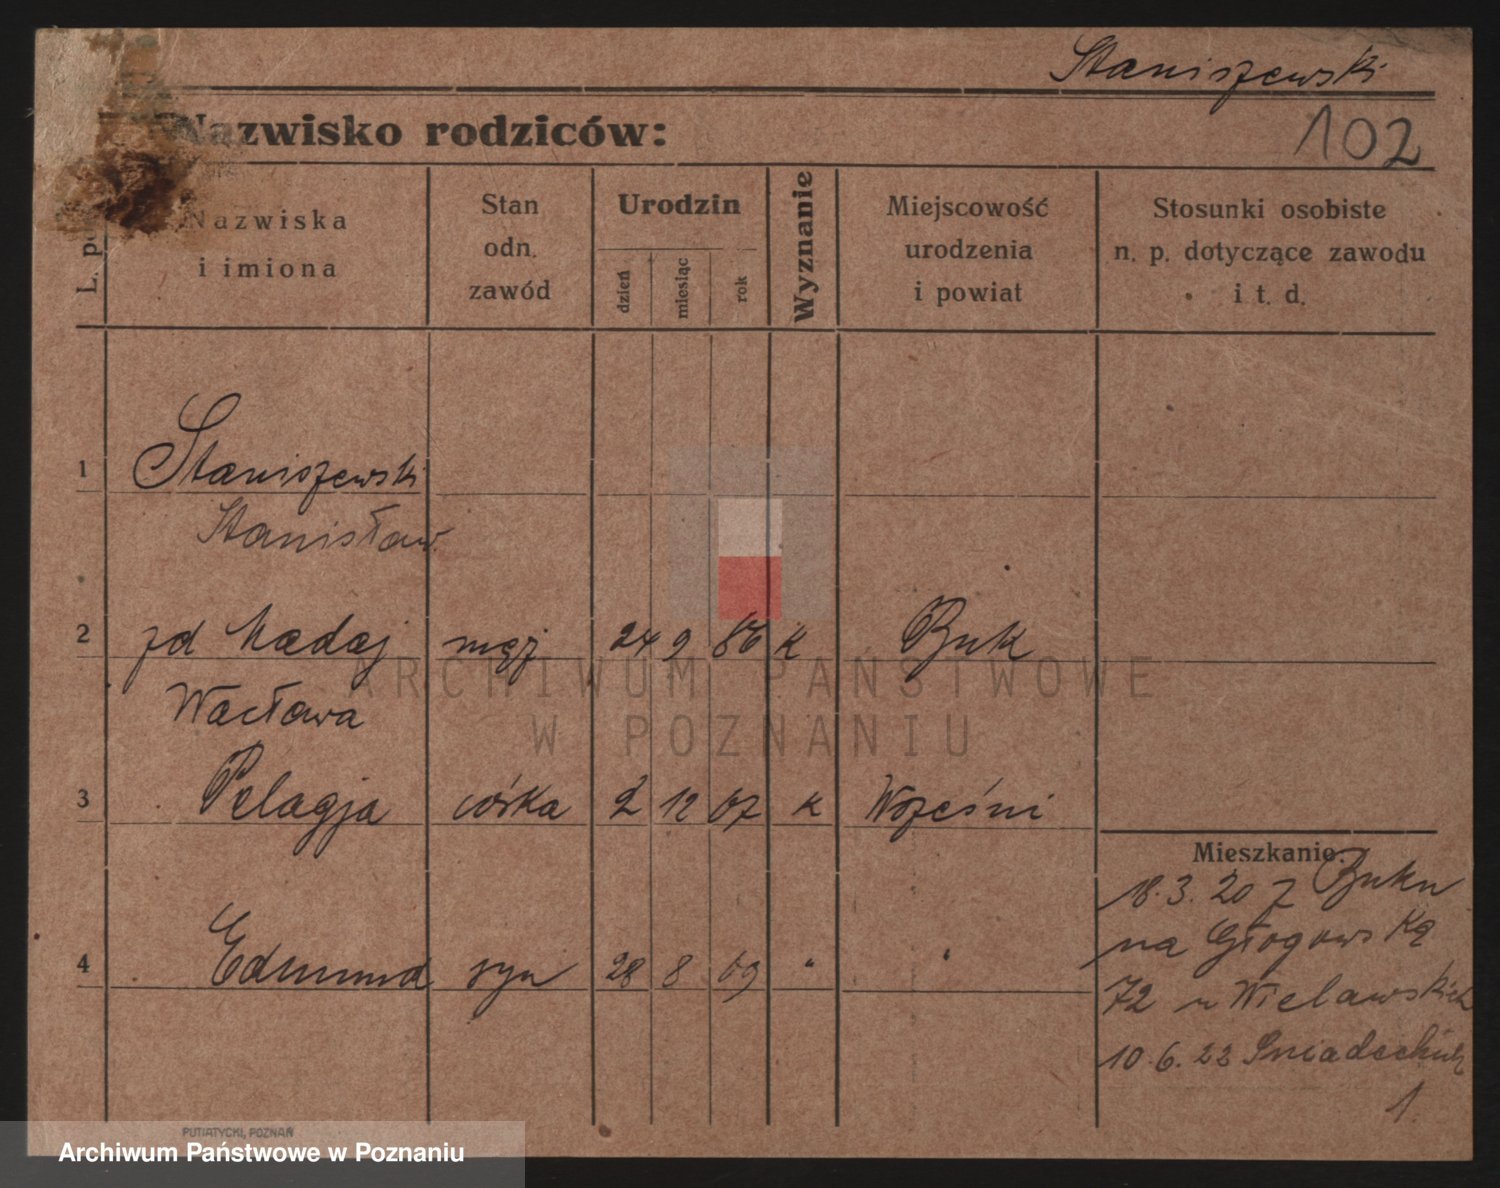 Staniszewski
102
Nazwisko rodziców:
L. p.
Nazwiska
i imiona
Stan
odn.
zawód
Urodzin
dzień
miesiąc
rok
Wyznanie
Miejscowość
urodzenia
i powiat
Stosunki osobiste
n. p. dotyczące zawodu
i t. d.
1 Staniszewski
Stanisław
2 zd Madaj męż 24 9 86 k Buk
Wacława
3 Pelagja córka 2 12 07 k Wrześni
4 Edmund syn 28 8 09 " "
Mieszkanie:
18.3.20 z Buku
na Głogowską
72 u Wielawskich
10.6.22 Śniadeckich
1.
PUTIATYCKI, POZNAŃ
ARCHIWUM PAŃSTWOWE
W POZNANIU
Archiwum Państwowe w Poznaniu